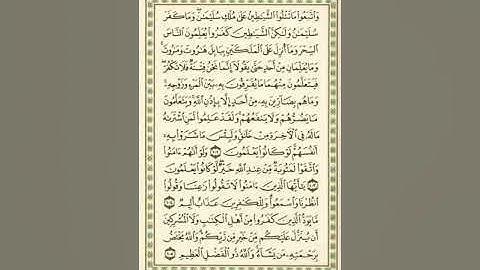 وَاتَّبَعُوا مَا تَتْلُوا الشَّيَاطِينُ عَلَىٰ مُلْكِ سُلَيْمَانَ وَمَا كَفَرَ
سُلَيْمَانُ وَلَٰكِنَّ الشَّيَاطِينَ كَفَرُوا يُعَلِّمُونَ النَّاسَ
السِّحْرَ وَمَا أُنْزِلَ عَلَى الْمَلَكَيْنِ بِبَابِلَ هَارُوتَ وَمَارُوتَ
وَمَا يُعَلِّمَانِ مِنْ أَحَدٍ حَتَّىٰ يَقُولَا إِنَّمَا نَحْنُ فِتْنَةٌ فَلَا تَكْفُرْ
فَيَتَعَلَّمُونَ مِنْهُمَا مَا يُفَرِّقُونَ بِهِ بَيْنَ الْمَرْءِ وَزَوْجِهِ
وَمَا هُمْ بِضَارِّينَ بِهِ مِنْ أَحَدٍ إِلَّا بِإِذْنِ اللَّهِ وَيَتَعَلَّمُونَ
مَا يَضُرُّهُمْ وَلَا يَنْفَعُهُمْ وَلَقَدْ عَلِمُوا لَمَنِ اشْتَرَاهُ
مَا لَهُ فِي الْآخِرَةِ مِنْ خَلَاقٍ وَلَبِئْسَ مَا شَرَوْا بِهِ
أَنْفُسَهُمْ لَوْ كَانُوا يَعْلَمُونَ ١٠٢ وَلَوْ أَنَّهُمْ آمَنُوا
وَاتَّقَوْا لَمَثُوبَةٌ مِنْ عِنْدِ اللَّهِ خَيْرٌ لَوْ كَانُوا يَعْلَمُونَ
١٠٣ يَا أَيُّهَا الَّذِينَ آمَنُوا لَا تَقُولُوا رَاعِنَا وَقُولُوا
انْظُرْنَا وَاسْمَعُوا وَلِلْكَافِرِينَ عَذَابٌ أَلِيمٌ ١٠٤
مَا يَوَدُّ الَّذِينَ كَفَرُوا مِنْ أَهْلِ الْكِتَابِ وَلَا الْمُشْرِكِينَ
أَنْ يُنَزَّلَ عَلَيْكُمْ مِنْ خَيْرٍ مِنْ رَبِّكُمْ وَاللَّهُ يَخْتَصُّ
بِرَحْمَتِهِ مَنْ يَشَاءُ وَاللَّهُ ذُو الْفَضْلِ الْعَظِيمِ ١٠٥